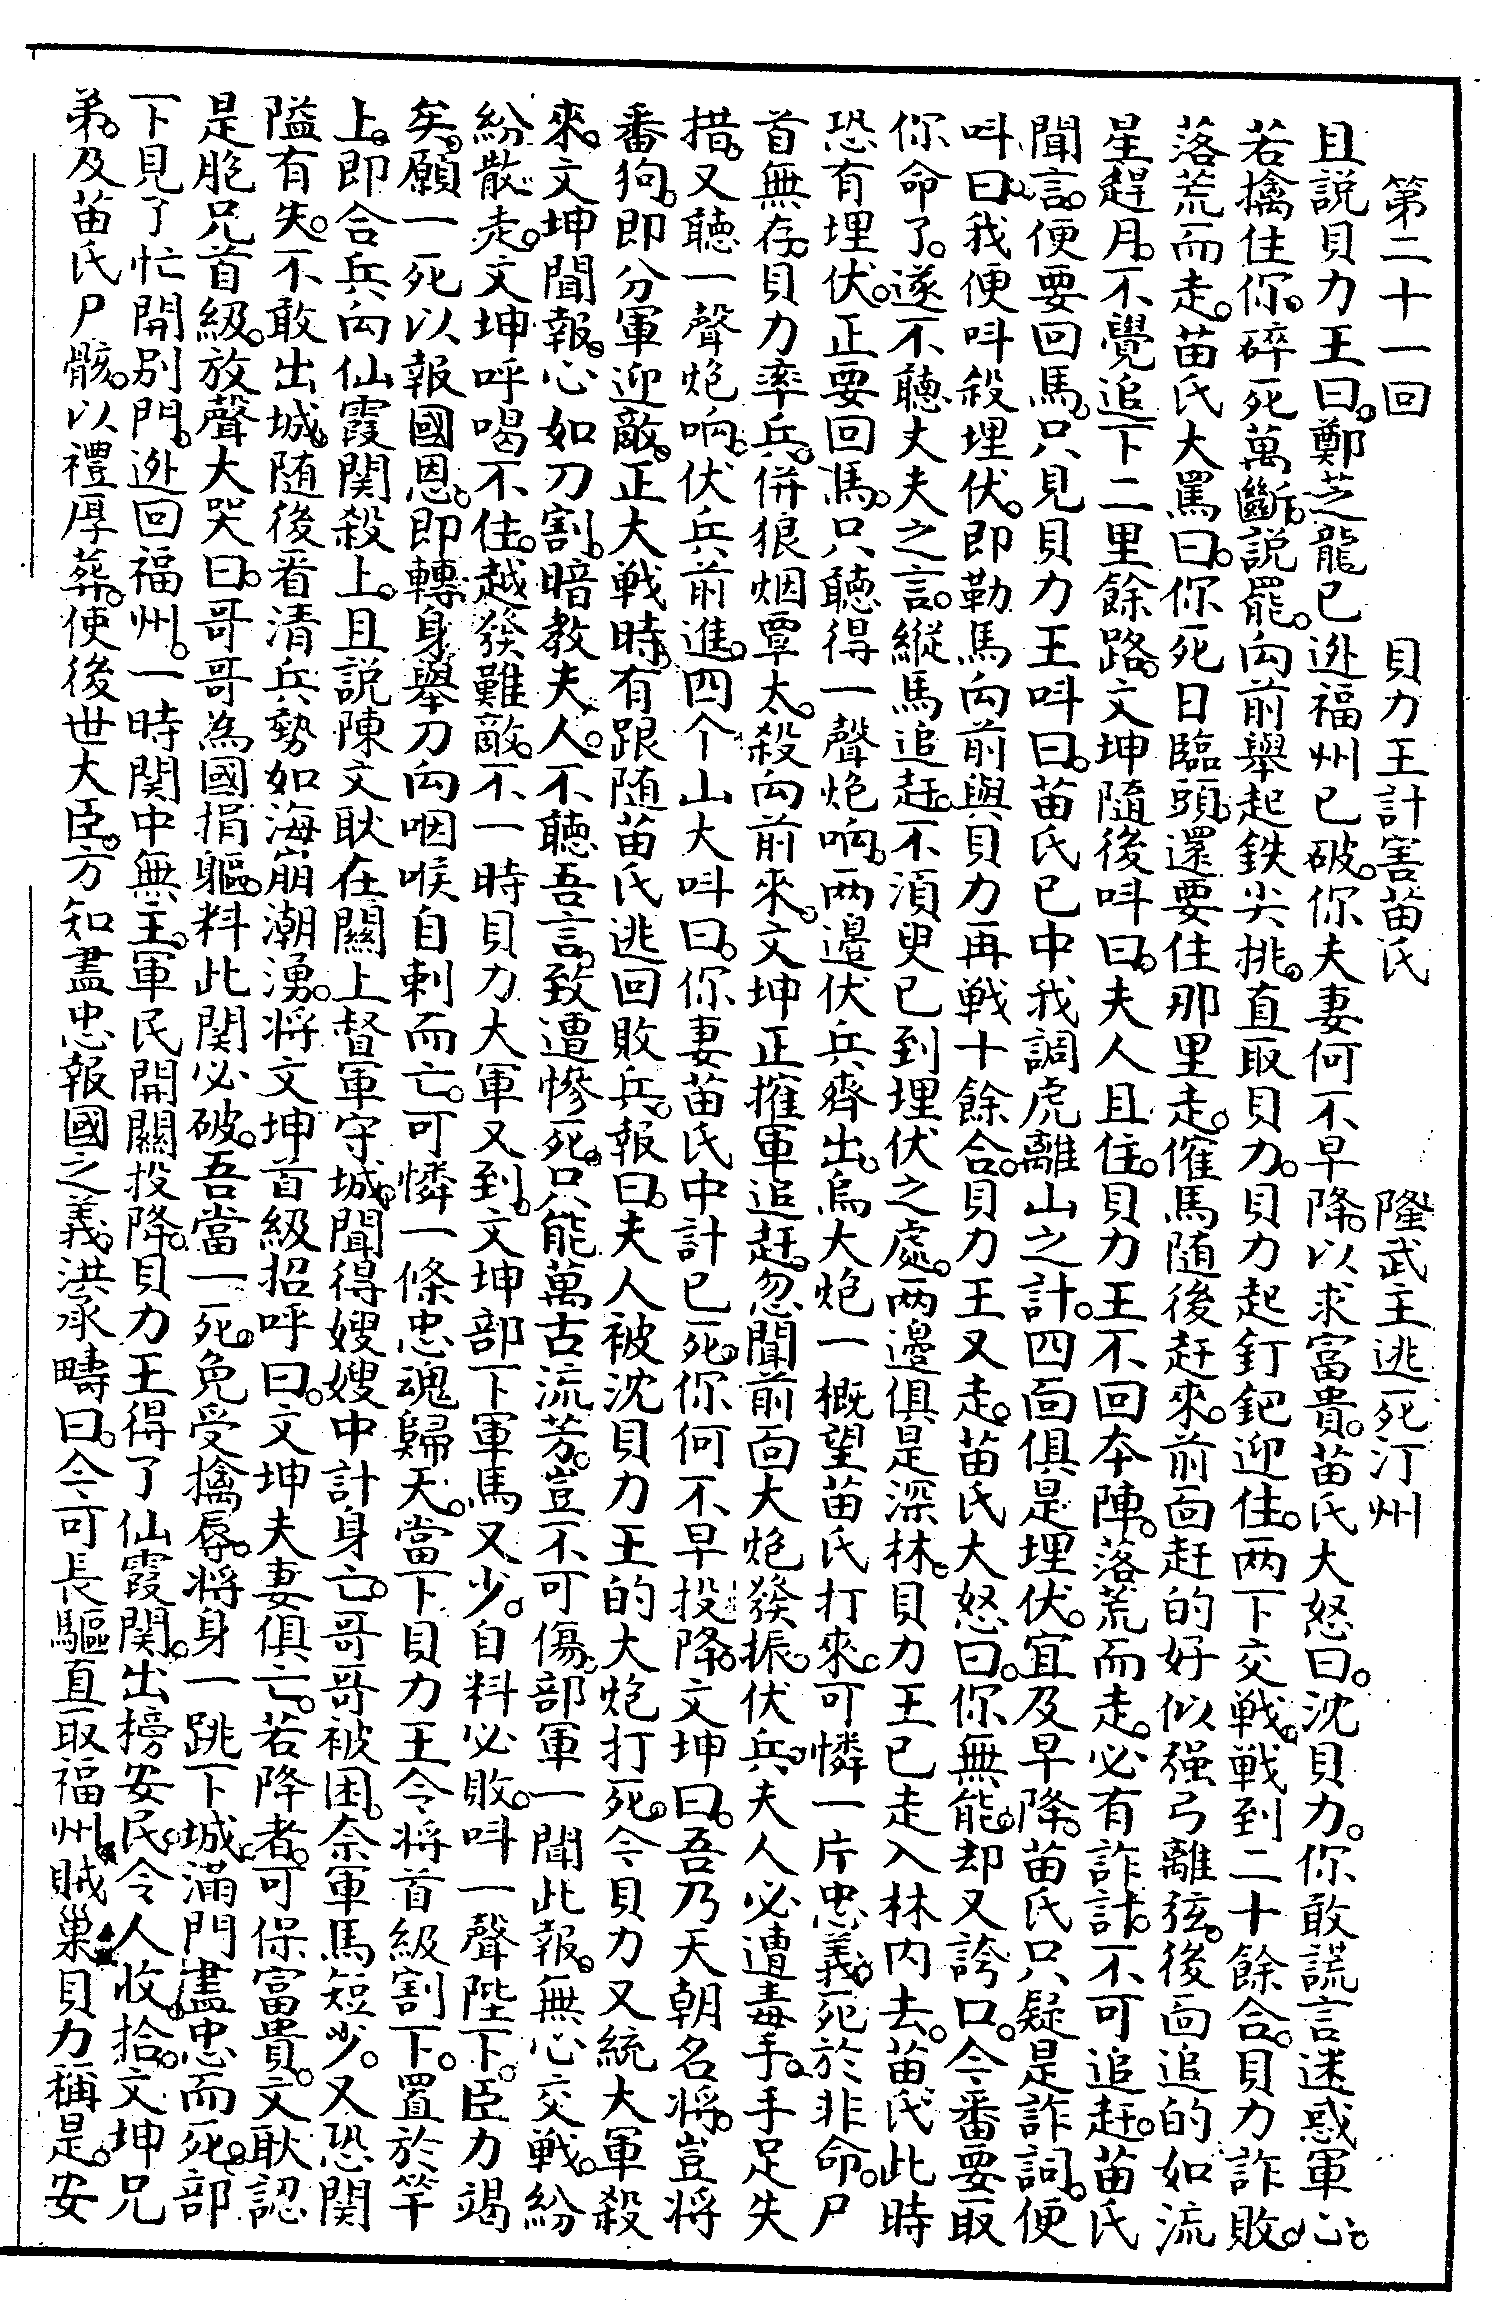 第二十一回　貝力王計害苗氏　隆武主逃死汀州
且説貝力王曰。鄭芝龍已逃福州已破。你夫妻何不早降。以求富貴。苗氏大怒曰。沈貝力。你敢謊言迷惑軍心。
若擒住你。碎死萬斷。説罷。向前舉起鉄尖挑。直取貝力。貝力起釘鈀迎住。两下交戰。戰到二十餘合。貝力詐敗。
落荒而走。苗氏大罵曰。你死日臨頭。還要往那里走。催馬随後赶來。前面赶的好似强弓離弦。後面追的如流
星趕月。不覺追下二里餘路。文坤隨後呌曰。夫人且住。貝力王不回本陣。落荒而走。必有詐計。不可追赶。苗氏
聞言。便要回馬。只見貝力王呌曰。苗氏已中我調虎離山之計。四面俱是埋伏。宜及早降。苗氏只疑是詐詞。便
呌曰。我便呌殺埋伏。即勒馬向前與貝力再戰十餘合。貝力王又走。苗氏大怒曰。你無能。却又誇口。今番要取
你命了。遂不聽丈夫之言。縱馬追赶。不湏臾已到埋伏之處。两邉俱是深林。貝力王已走入林内去。苗氏此時
恐有埋伏。正要回馬。只聽得一聲炮响。两邉伏兵齊出。鳥大炮一概望苗氏打來。可憐一片忠義。死於非命。尸
首無存。貝力率兵。併狼烟覃太。殺向前來。文坤正摧軍追赶。忽聞前面大炮發振。伏兵。夫人必遭毒手。手足失
措。又聽一聲炮响。伏兵前進。四个山大呌曰。你妻苗氏中計已死。你何不早投降。文坤曰。吾乃天朝名將。豈将
番狗。即分軍迎敵。正大戰時。有跟随苗氏逃回敗兵。報曰。夫人被沈貝力王的大炮打死。今貝力又統大軍殺
來。文坤聞報。心如刀割。暗教夫人。不聽吾言。致遭慘死。只能萬古流芳。豈不可傷。部軍一聞此報。無心交戰。紛
紛散走。文坤呼喝不住。越發難敵。不一時貝力大軍又到。文坤部下軍馬又少。自料必敗。呌一聲陛下。臣力竭
矣。願一死以報國恩。即轉身舉刀向咽喉自刺而亡。可憐一條忠魂歸天。當下貝力王令將首級割下。置於竿
上。即合兵向仙霞関殺上。且説陳文耿在關上督軍守城。聞得嫂嫂中計身亡。哥哥被困。奈軍馬短少。又恐関
隘有失。不敢出城。随後看清兵勢如海崩潮湧。将文坤首級招呼曰。文坤夫妻俱亡。若降者。可保富貴。文耿認
是胞兄首級。放聲大哭曰。哥哥為國捐軀。料此関必破。吾當一死。免受擒辱。將身一跳下城。滿門盡忠而死。部
下見了忙開别門。逃回福州。一時関中無主。軍民開關投降。貝力王得了仙霞関。出榜安民。令人收拾。文坤兄
弟。及苗氏尸骸。以禮厚葬。使後世大臣。方知盡忠報國之義。洪承疇曰。今可長驅直取福州賊巢。貝力稱是。安